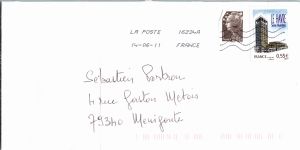 LA POSTE 16234A
14-06-11 FRANCE
LE HAVRE
FRANCE 0,55€
Sébastien
4 rue Gaston Metois
79340 Menigoute